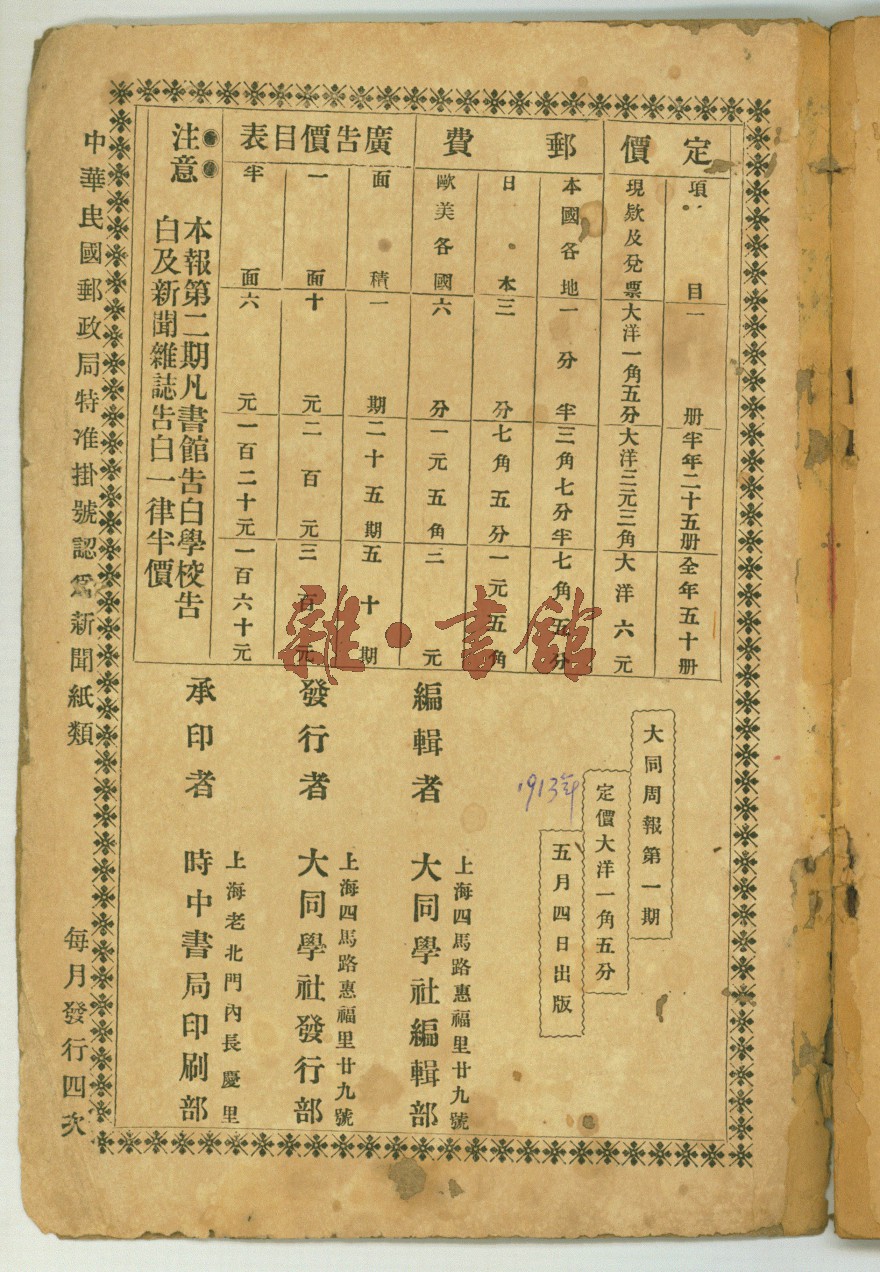 定價
項目 一册 半年二十五册 全年五十册
現欵及兌票 大洋一角五分 大洋三元三角 大洋六元
郵費
本國各地 一分半 三角七分半 七角五分
日本 三分 七角五分 一元五角
歐美各國 六分 一元五角 三元
廣告價目表
面積 一期 二十五期 五十期
一面 十元 二百元 三百元
半面 六元 一百二十元 一百六十元
注意
本報第二期凡書館告白學校告
白及新聞雜誌告白一律半價
大同周報第一期
定價大洋一角五分
五月四日出版
1913年
編輯者
上海四馬路惠福里廿九號
大同學社編輯部
發行者
上海四馬路惠福里廿九號
大同學社發行部
承印者
上海老北門內長慶里
時中書局印刷部
中華民國郵政局特准掛號認爲新聞紙類
每月發行四次
雜·書館